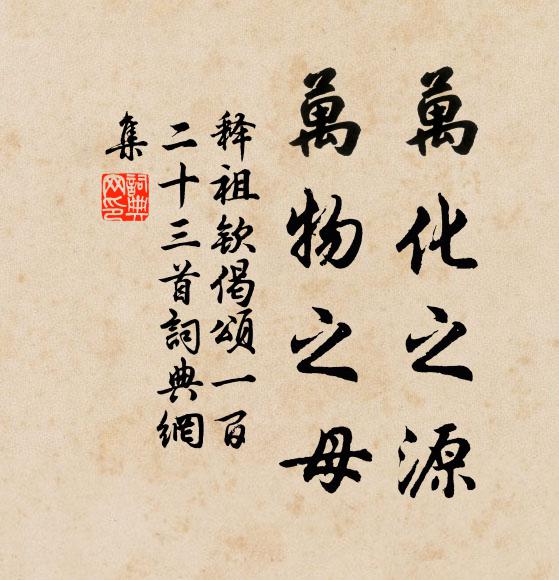 萬化之源
萬物之母
释祖钦偈頌一百
二十三首詞典網
集
詞典網印